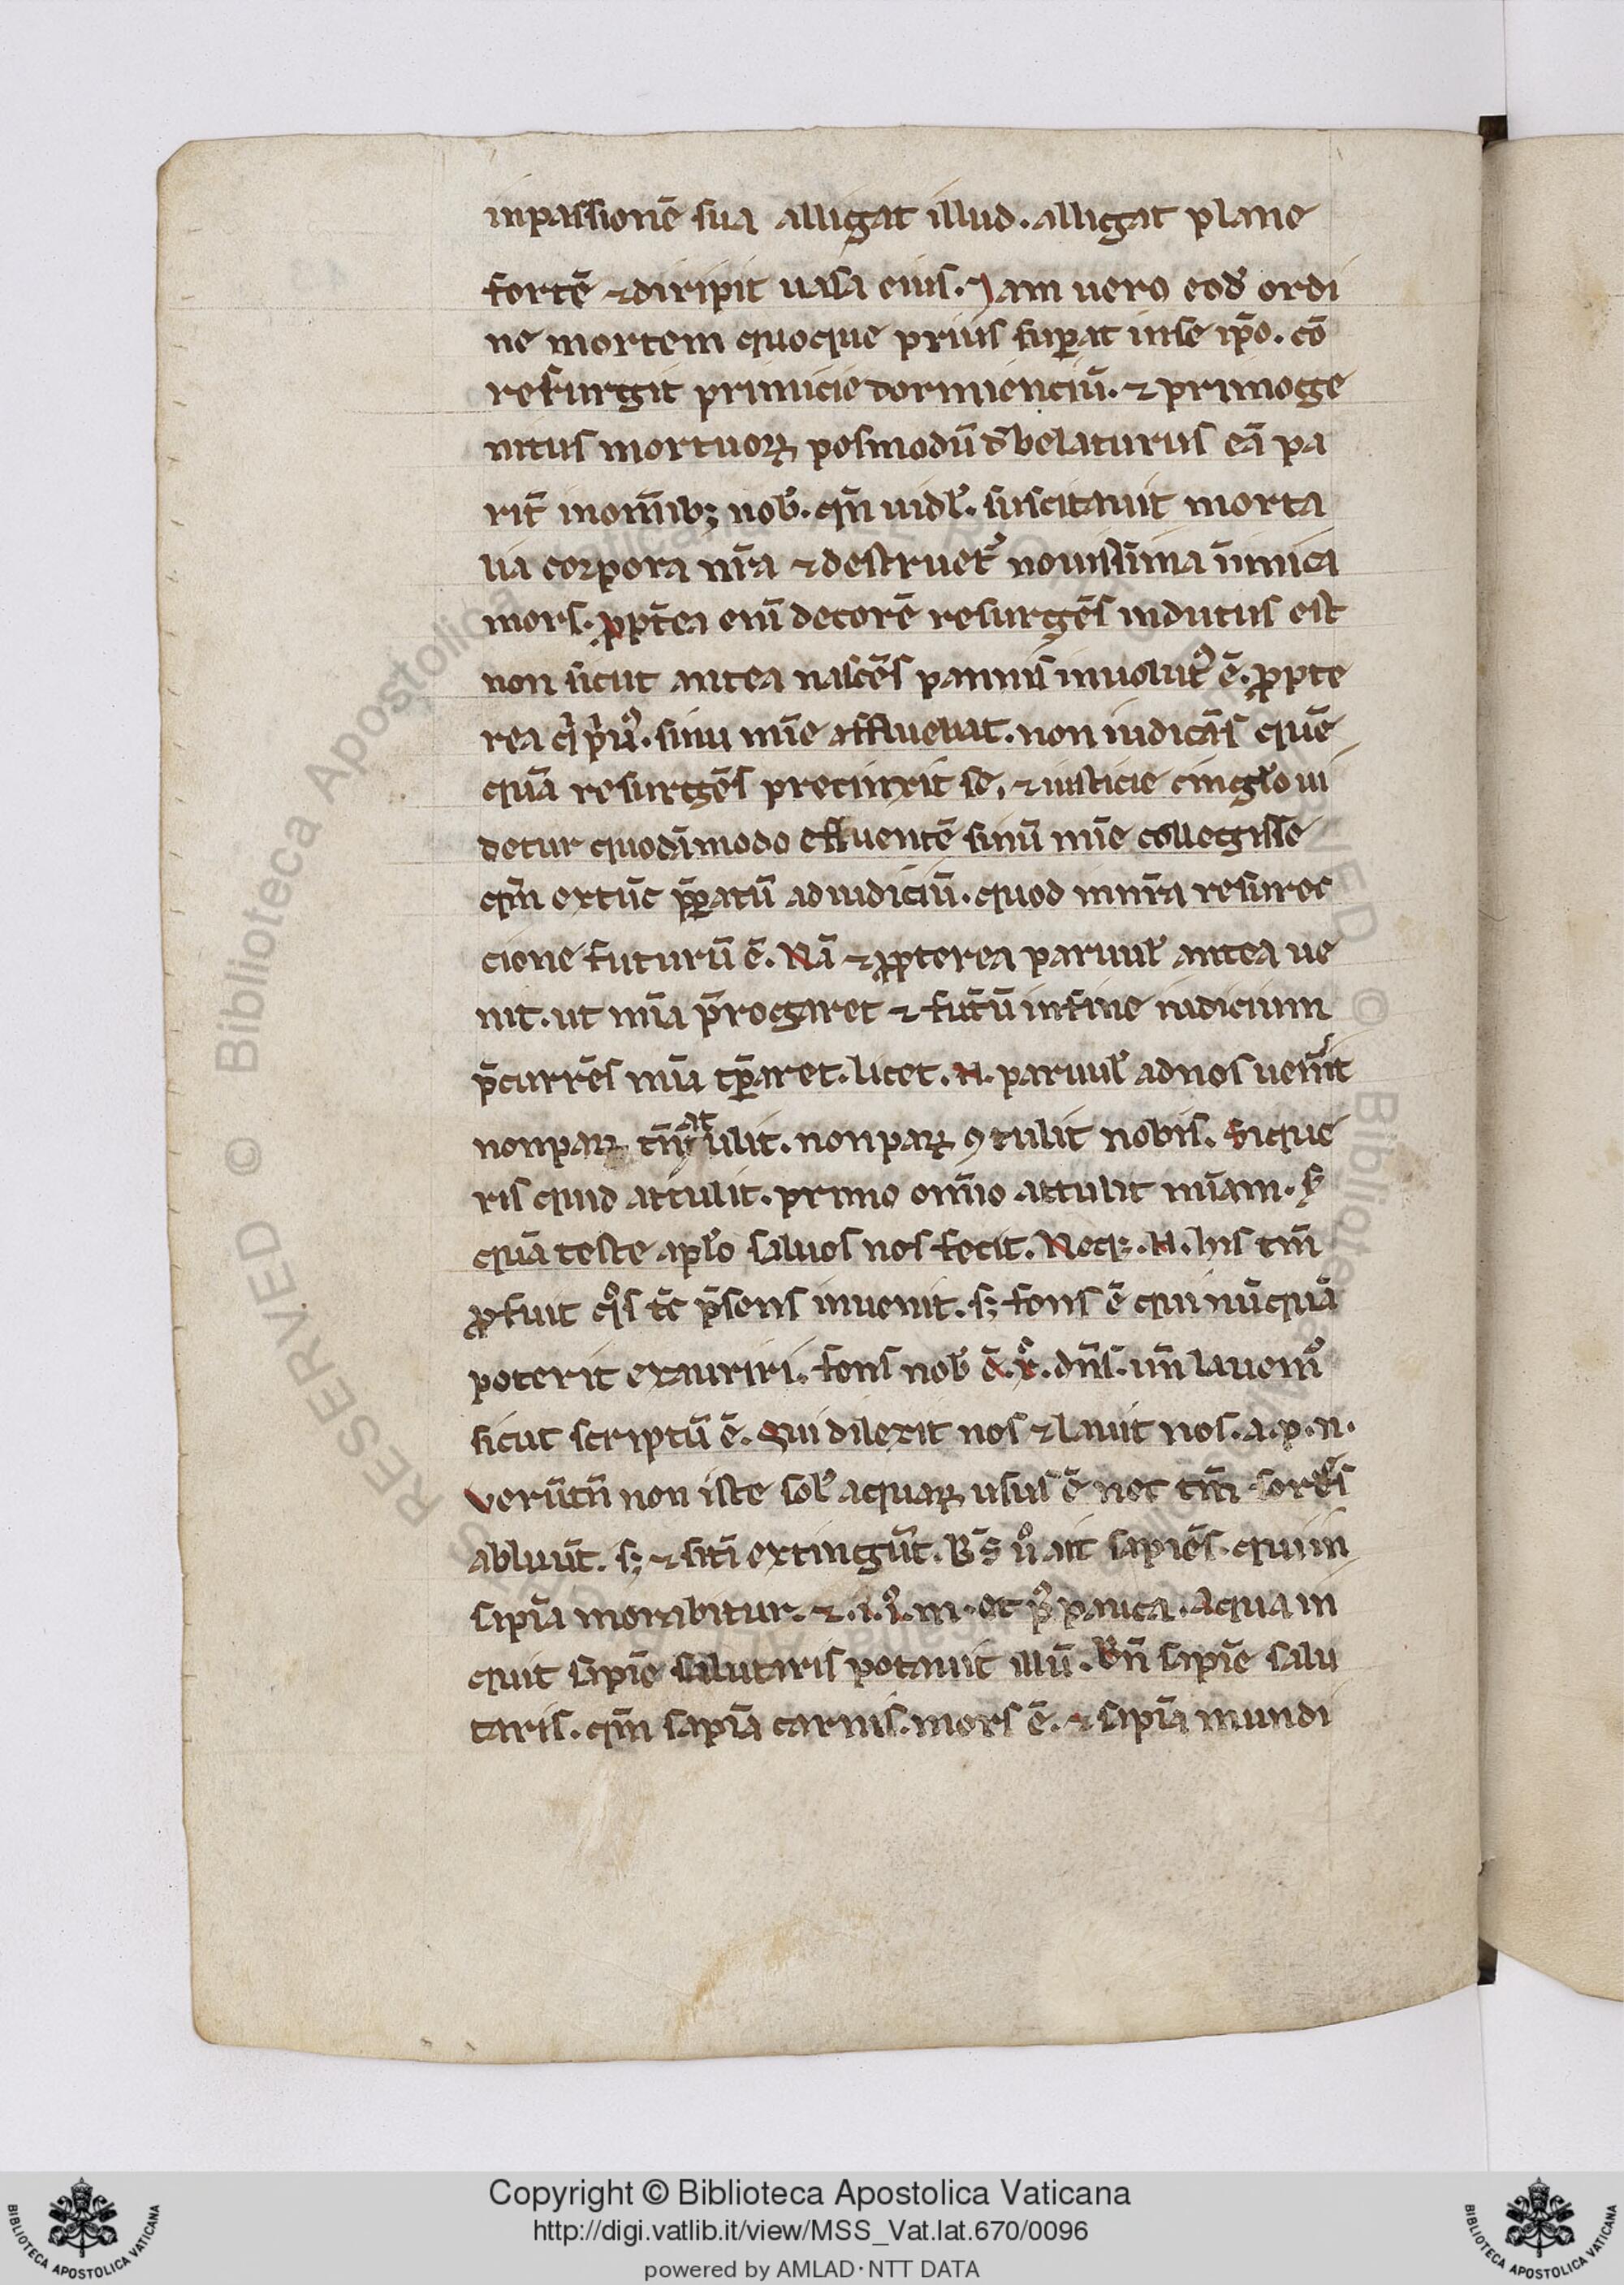 inpassionē sua alligat illud. alligat plane
fortē ⁊diripit uasa eius. Jam uero eod̄ ordi
ne mortem quoque prius suꝑat inse ip̄o. cō
resurgit primicie dormienciū. ⁊ primoge
nitus mortuoꝝ posmodū d̄belaturus eā pa
rit̄ inom̄ibꝫ nob̄. qm̄ uidꝉ. suscitauit morta
ua corpora nr̄a ⁊destruet᷑ nouissima īnimica
mors. ꝓpt̄ea eni decorē resurgēs indutus est
non sicut antea nascēs pannis inuolutꝰ ē. ꝓpte
rea qͥ pͥuꝰ. sinu mīe affluebat. non iudicās quē
quā resurgēs precinxit se. ⁊iusticie cingꝉo ui
detur quodāmodo effluentē sinū mīe collegisse
qm̄ extūc p̄ꝑatū adiudiciū. quod innr̄a resurrec
cione futurū ē. Nā ⁊ꝓpterea paruulꝰ antea ue
nit. ut mīa p̄rogaret ⁊ futurū infine iudicium
p̄currēs mīa tꝑaret. licet .n. paruulꝰ adnos uenerit
nonparꝝ tm̄ attulit. nonparꝝ ꝯtulit nobis. Sique
ris quid attulit. primo om̄io attulit mīam. s̄
quā teste apꝉo saluos nos fecit. Neqꝫ .n. hiis tm̄
ꝓfuit qͦs tc̄ p̄sens inuenit. sꝫ fons ē qui nūquā
poterit exauriri. fons nob̄ ē. x̄. dn̄s. un̄ lauemꝰ
sicut scriptū ē. Qui dilexit nos ⁊lauit nos .a.p.n.
verūtn̄ non iste solꝰ aquaꝝ usus ē nec tm̄ sordes
abluūt. sꝫ ⁊ sitī extingūt. Bs̄ uͦ ait sapiēs. qui in
sapīa morabitur. ⁊ .i.i.m. et pꝰ pauca. Aqua in
quit sapīe salutaris potauit illū. Bn̄ sapīe salu
taris. qm̄ sapīa carnis. mors ē. ⁊ sapīa mundi
Copyright © Biblioteca Apostolica Vaticana
http://digi.vatlib.it/view/MSS_Vat.lat.670/0096
powered by AMLAD·NTT DATA
BIBLIOTECA APOSTOLICA VATICANA
BIBLIOTECA APOSTOLICA VATICANA